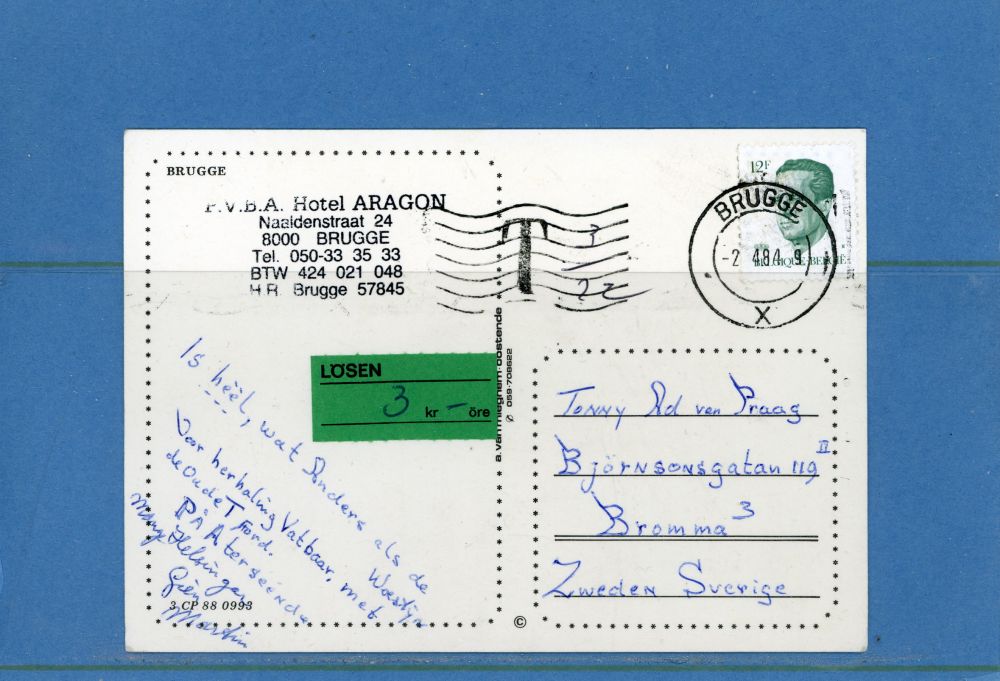 BRUGGE
P.V.B.A. Hotel ARAGON
Naaldenstraat 24
8000 BRUGGE
Tel. 050-33 35 33
BTW 424 021 048
H.R. Brugge 57845
T
3
22
12F
BELGIQUE-BELGIË
BRUGGE
-2 484 9
X
LÖSEN
3 kr - öre
a. van mieghem-oostende
059-708622
Is heel, wat Anders als de Woestijn
Voor herhaling Vatbaar, met
de oude T Ford.
På Återseende
Many Helsingar
Martin
3 CP 88 0993
©
Tonny Ad van Praag
Björnsonsgatan 119 II
Bromma 3
Zweden Sverige